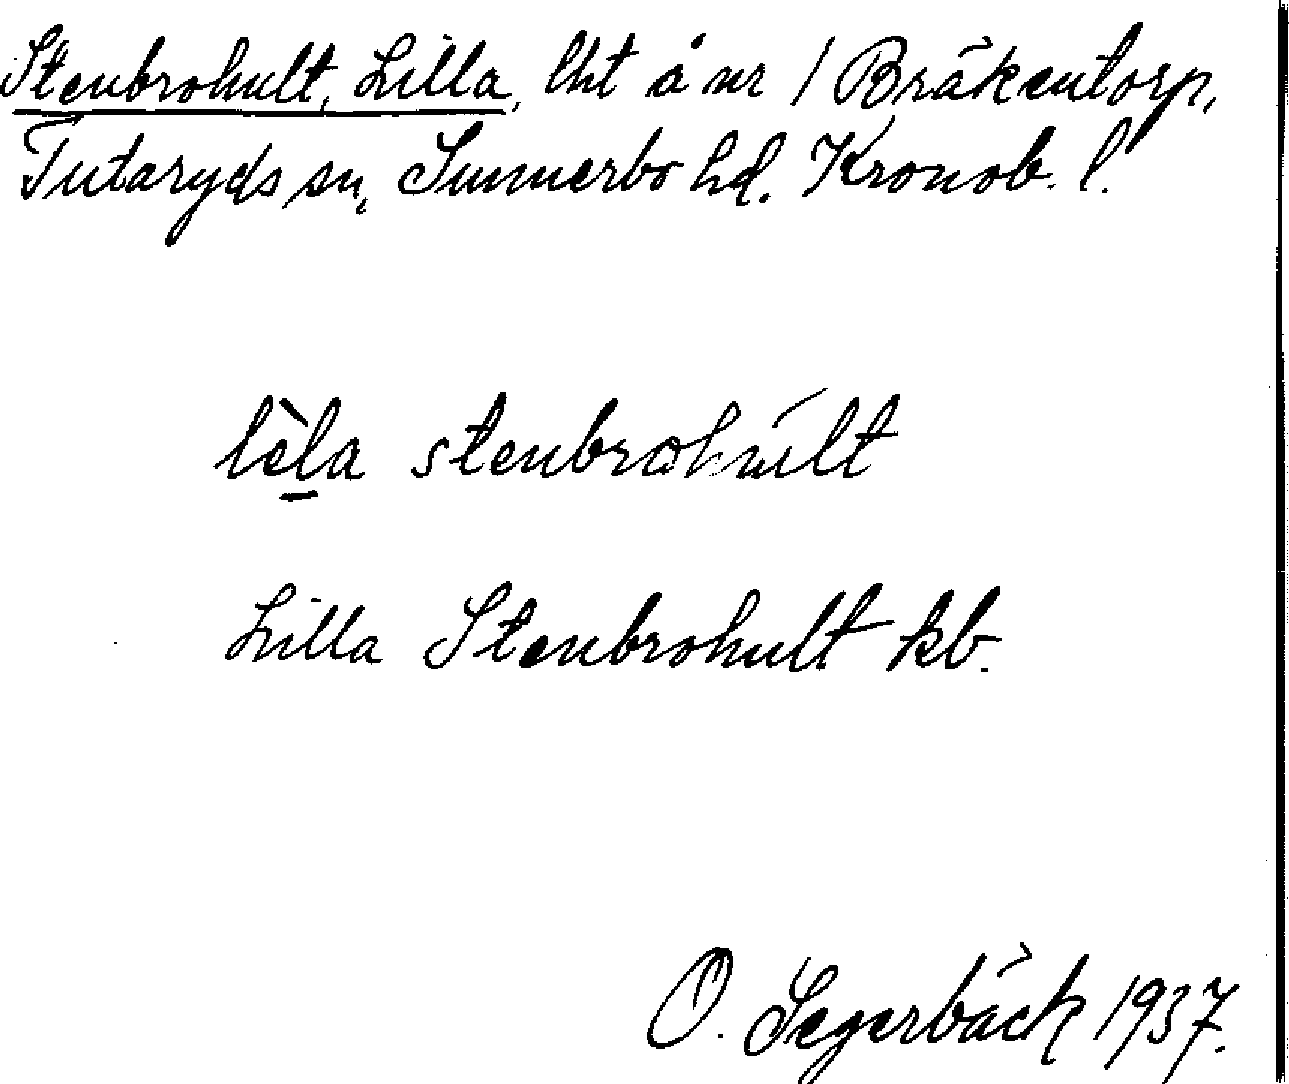 Stenbrohult, Lilla, lht å nr 1 Bräkentorp,
Tutaryds sn, Sunnerbo hd. Kronob. l.
lèla stenbrohúlt
Lilla Stenbrohult kb.
O. Segerbäck 1937.